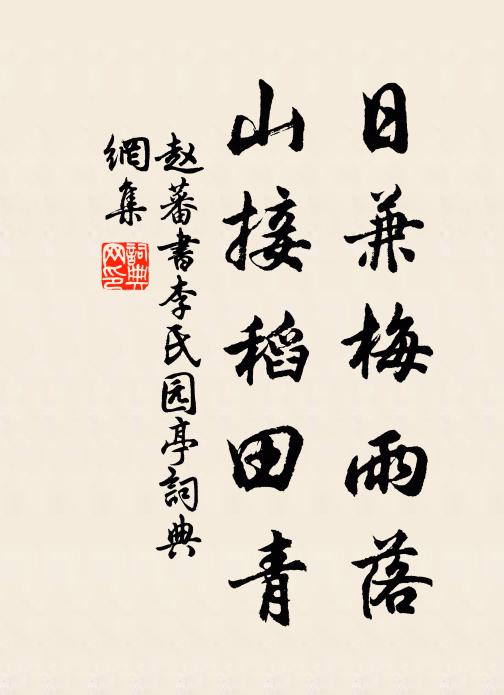 日兼梅雨落
山接稻田青
赵蕃書李氏园亭詞典
網集
詞典
网印